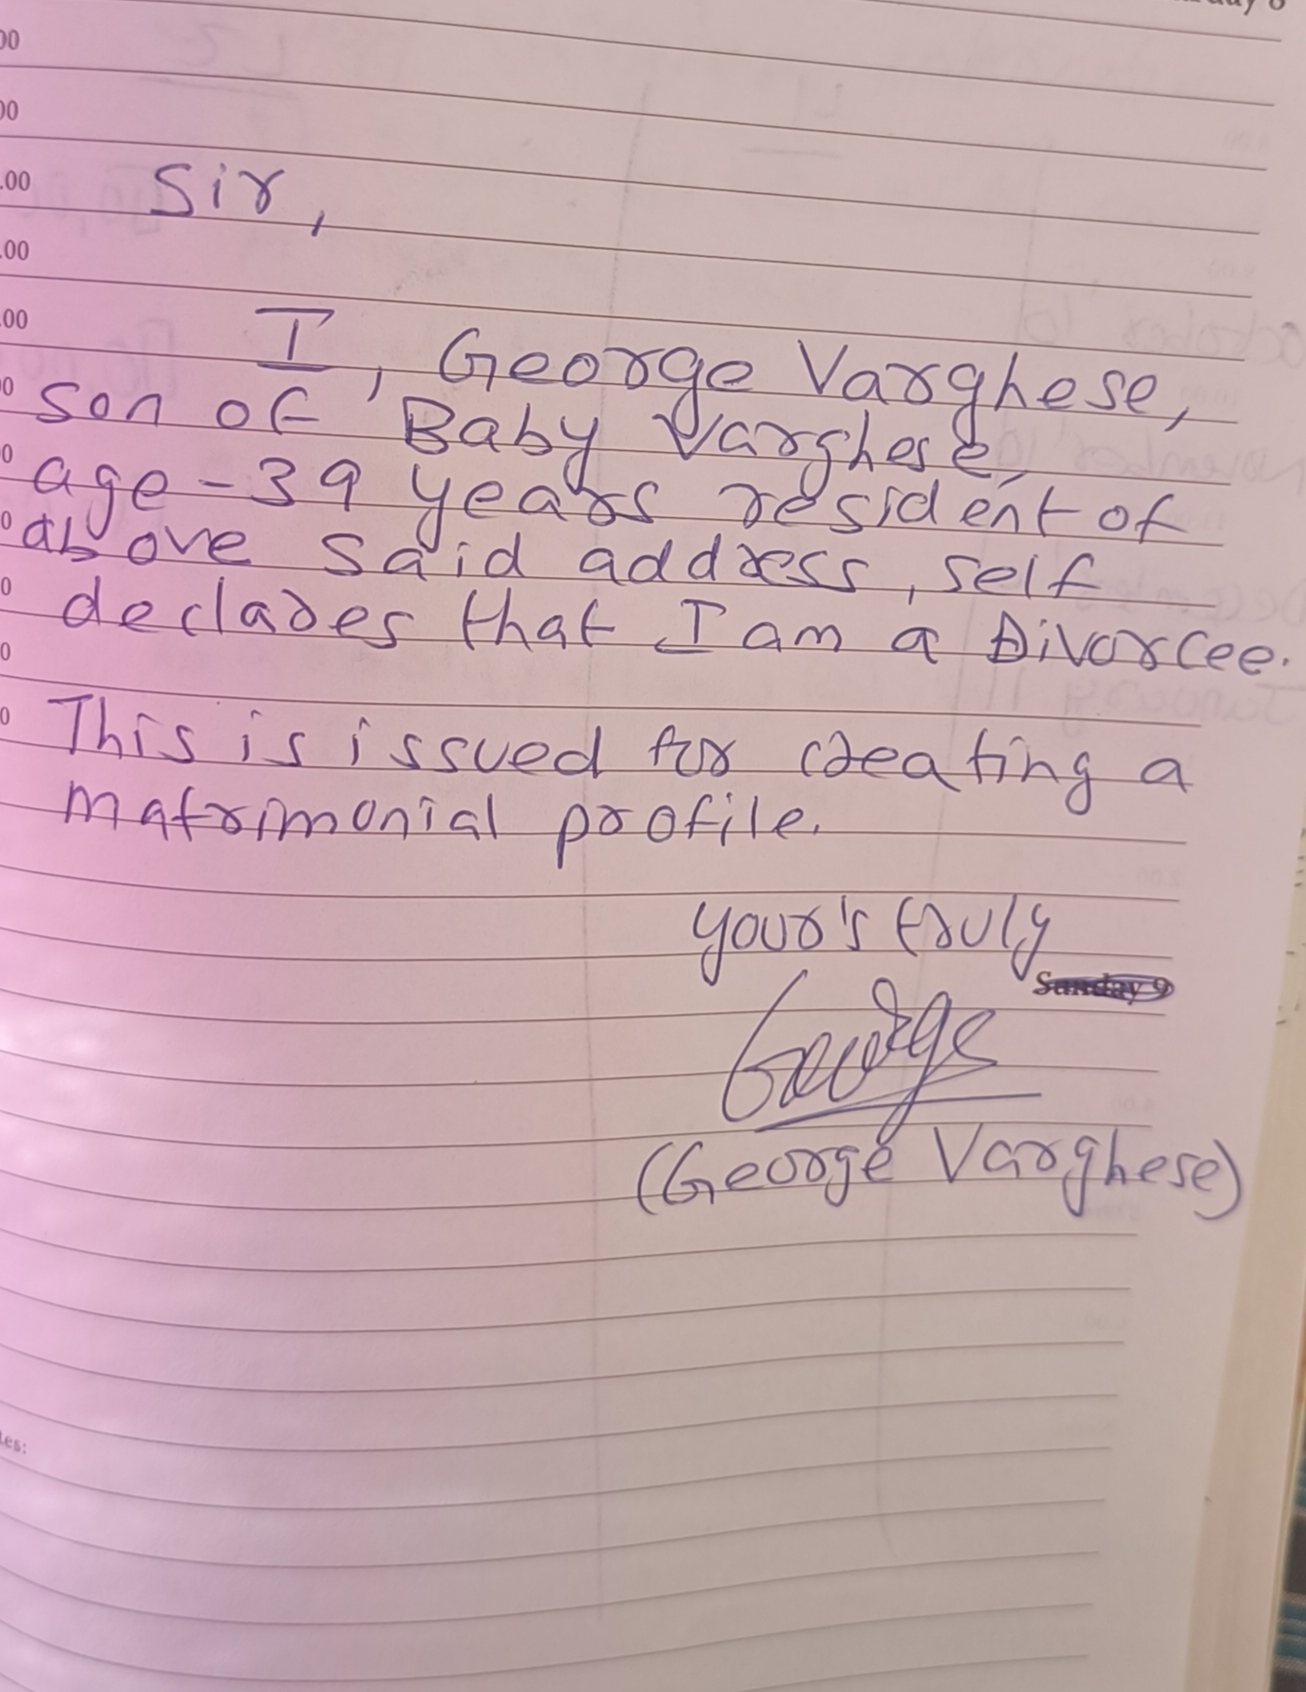 00
00
.00
Sir,
.00
.00
I, George Varghese,
son of Baby Varghese,
age - 39 years resident of
above said address, self
declares that I am a Divorcee.
This is issued for creating a
matrimonial profile.
your's truly
Sunday 9
George
(George Varghese)